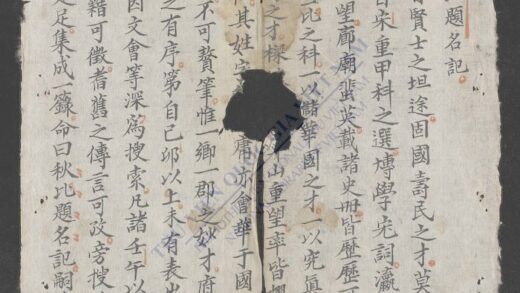 題名記
賢士之坦途固國壽民之才莫
宋重甲科之選博學宏詞瀛
望廊廟蜚英載諸史冊皆歷歷可
比之科一以諸華國之才一以究真
之才樑 山重望率皆
其姓字 唐亦會華于國
不可贅筆惟一鄉一郡之妙才府
之有序第自己卯以上未有表出
因文會等深爲搜索凡諸壬午以
籍可徵耆舊之傳言可攷旁搜
足集成一籙命曰秋比題名記嗣